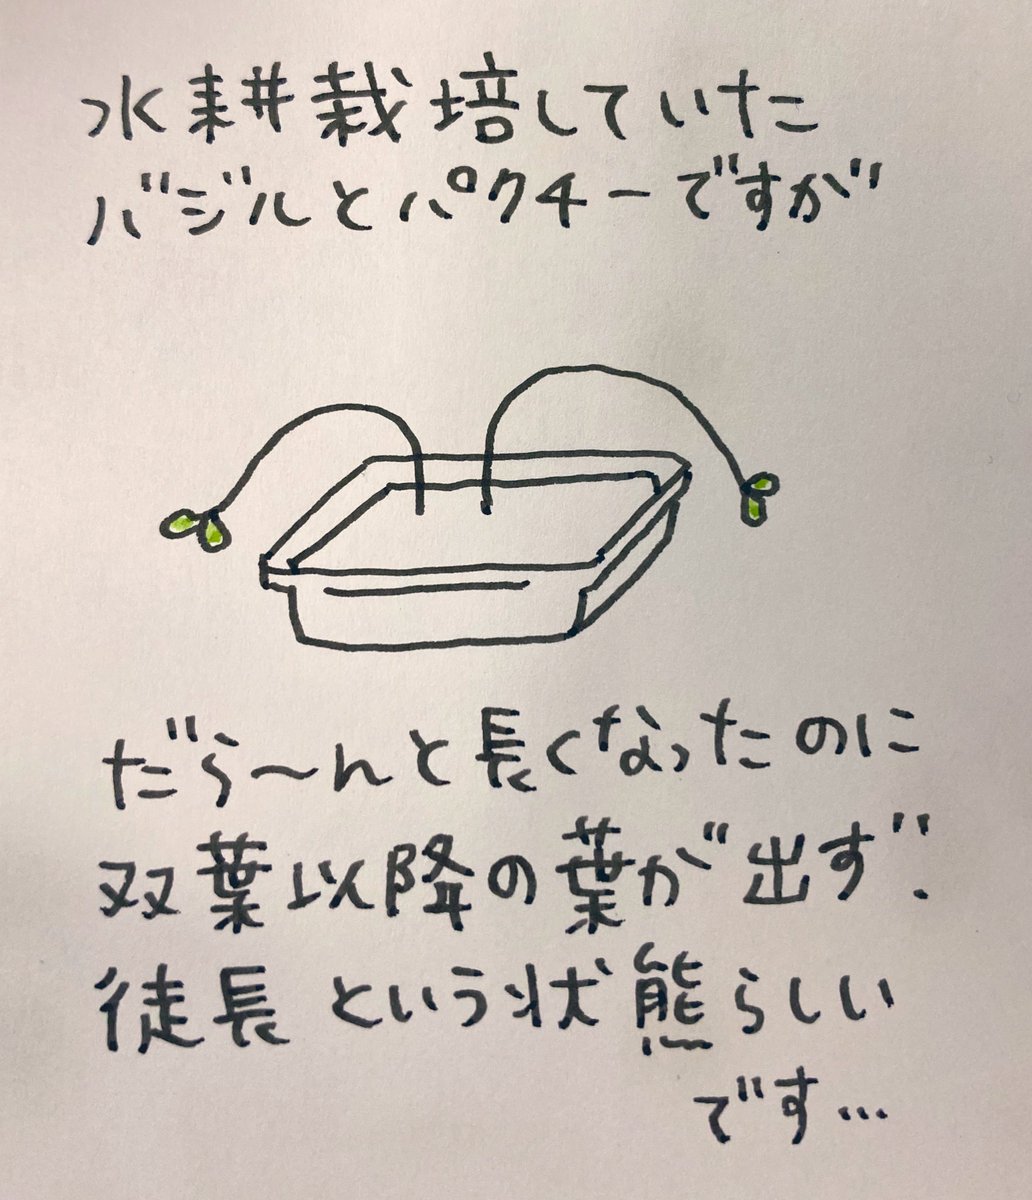 水耕栽培していた
バジルとパクチーですが
だら〜んと長くなったのに
双葉以降の葉が出ず.
徒長という状態らしい
です…